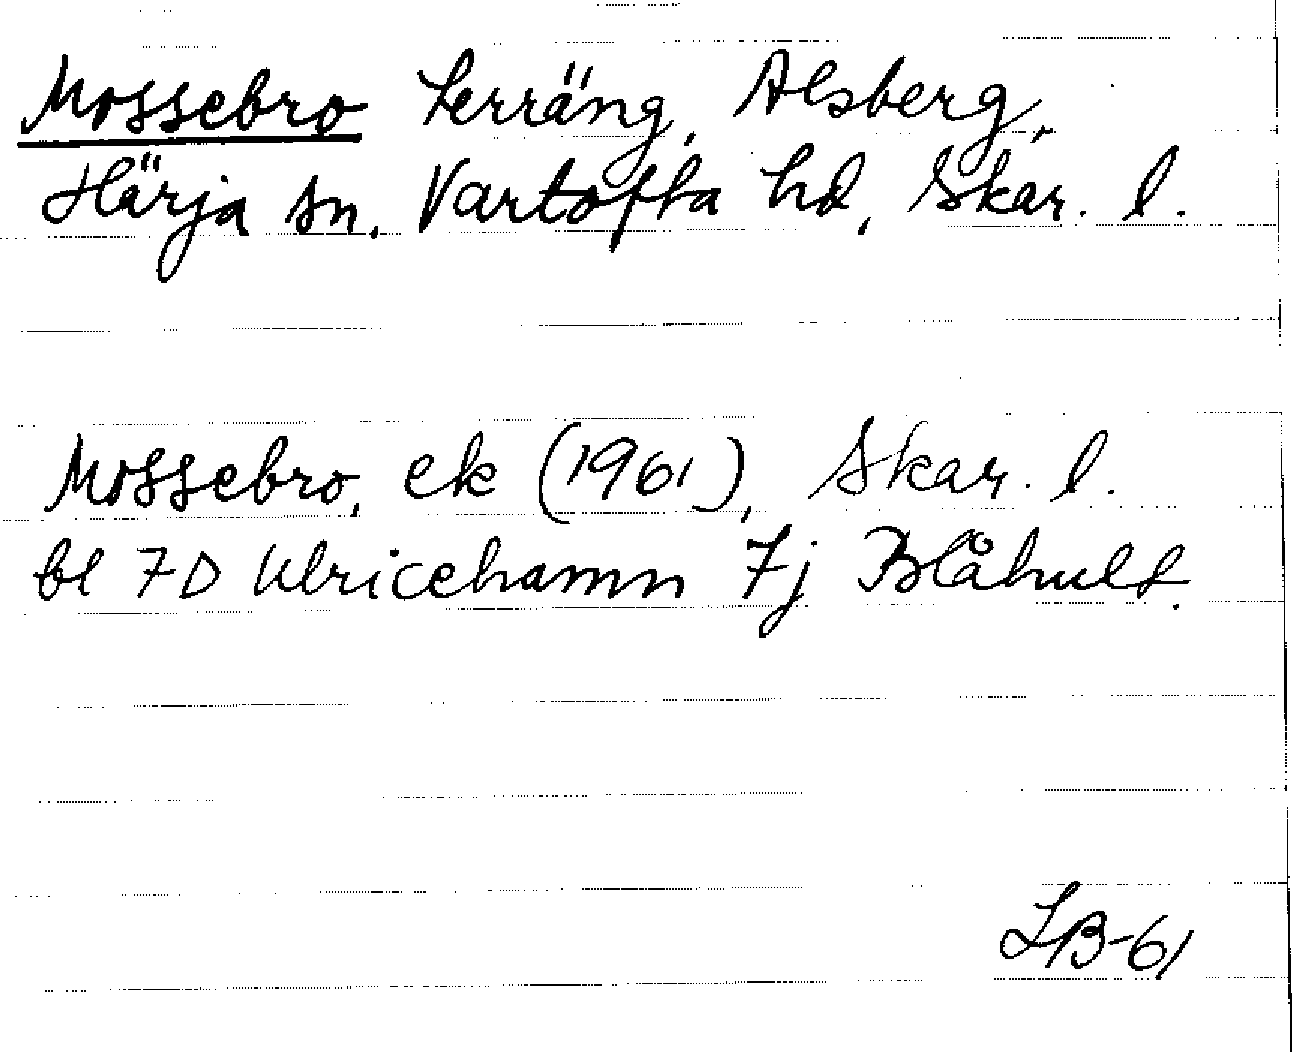 Mossebro Terräng, Alsberg,
Härja sn, Vartofta hd, Skar. l.
Mossebro, ek (1961), Skar. l.
bl 7D Ulricehamn 7j Blåhult.
LB-61